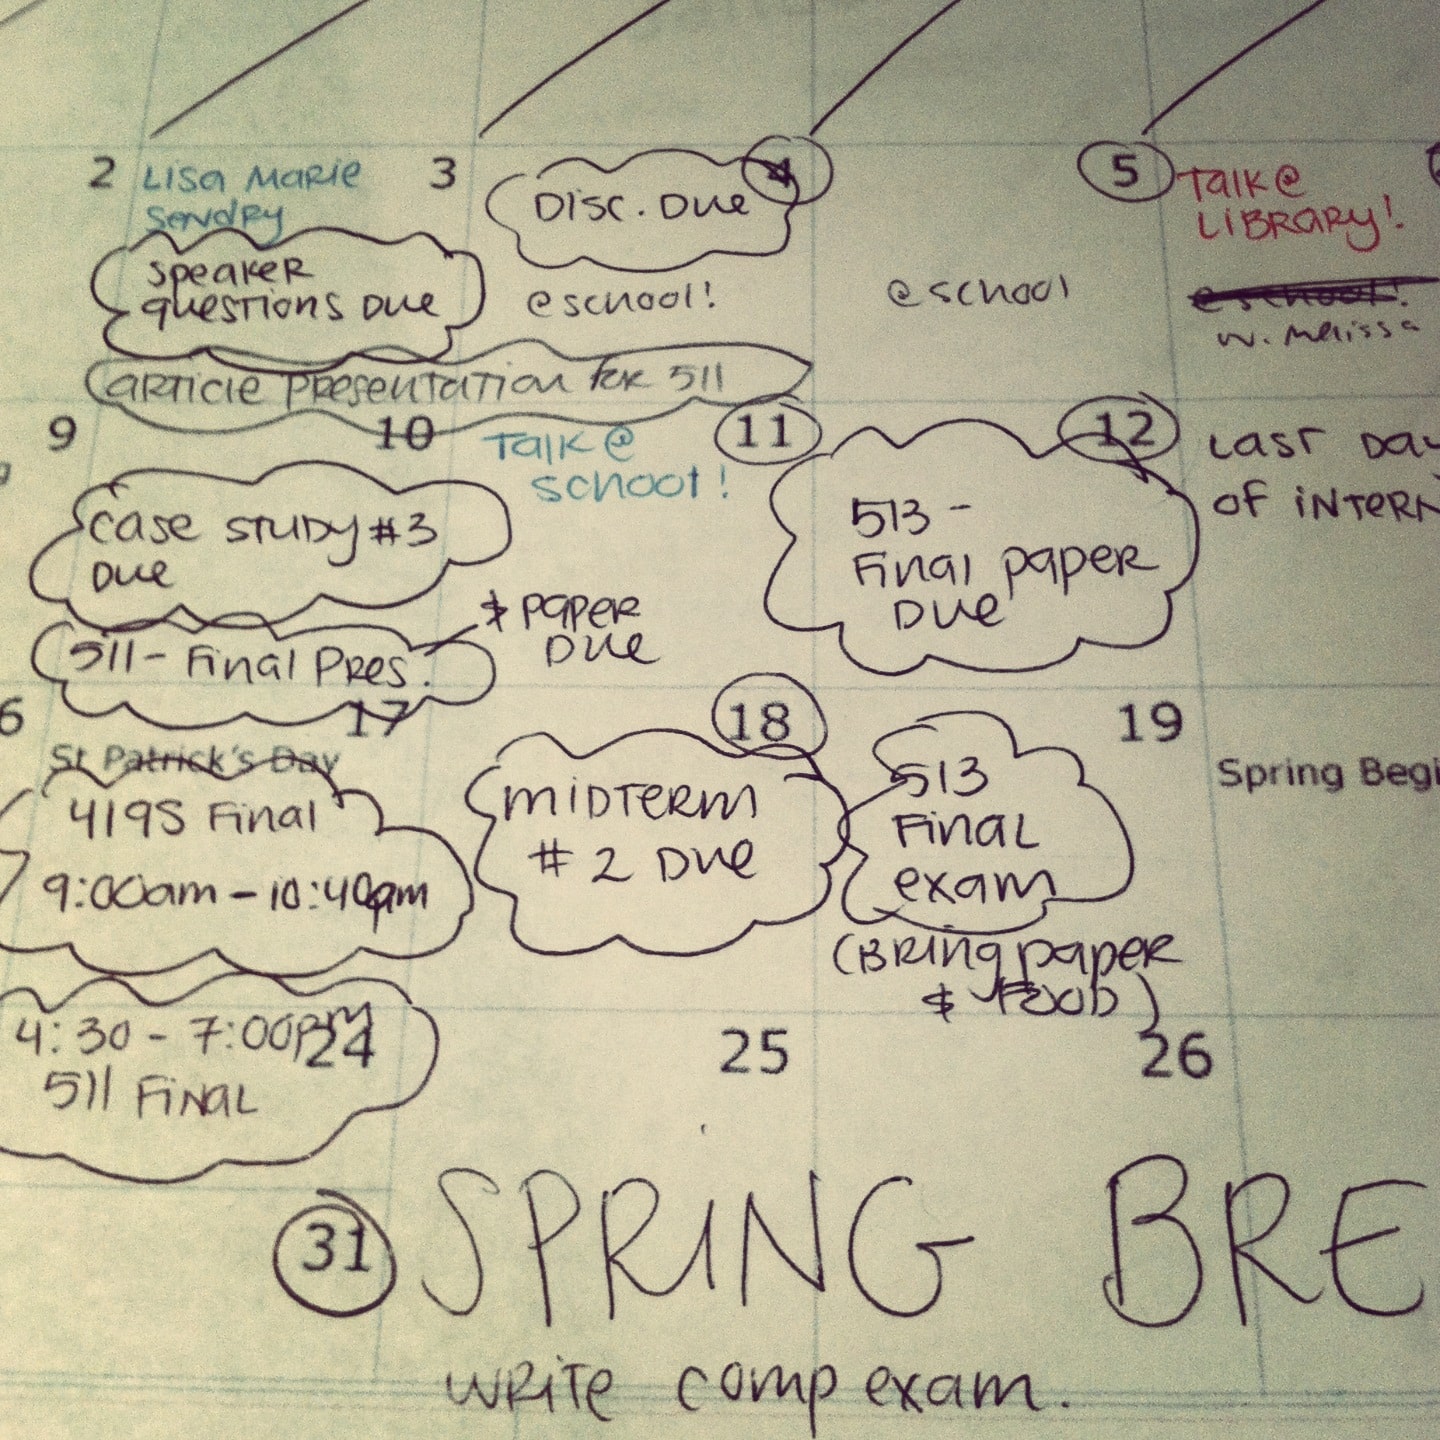 2 Lisa Marie
Sendry
speaker
questions Due
3
Disc. Due
@school!
4
@school
5 Talk@
Library!
@school!
w. Melissa
article presentation for 511
9
case study #3
Due
511 - Final Pres.
& paper
Due
10 Talk@
school!
11
513 -
Final paper
Due
12 Last Day
of intern
6
17
St Patrick's Day
419S Final
9:00am - 10:40am
4:30 - 7:00pm
511 Final
midterm
# 2 Due
18
513
Final
exam
(Bring paper
& Food)
19
Spring Begi
24
25
26
31
SPRING BRE
write comp exam.